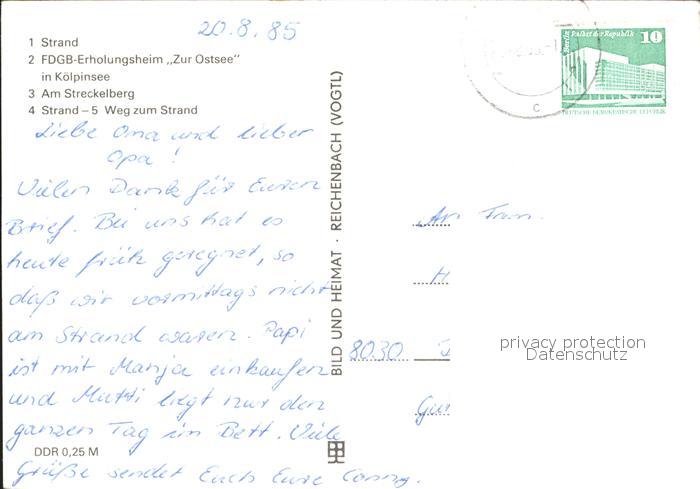 20.8.85
1 Strand
2 FDGB-Erholungsheim „Zur Ostsee"
in Kölpinsee
3 Am Streckelberg
4 Strand – 5 Weg zum Strand
Liebe Oma und lieber
Opa!
Vielen Dank für Euren
Brief. Bei uns hat es
heute früh geregnet, so
daß wir vormittags nicht
am Strand waren. Papi
ist mit Manja einkaufen
und Mutti liegt nur den
ganzen Tag im Bett. Viele
Grüße sendet Euch Eure Conny.
DDR 0,25 M
BILD UND HEIMAT · REICHENBACH (VOGTL)
Berlin Palast der Republik 10
DEUTSCHE DEMOKRATISCHE REPUBLIK
c
An Fam.
H
8030
privacy protection
Datenschutz